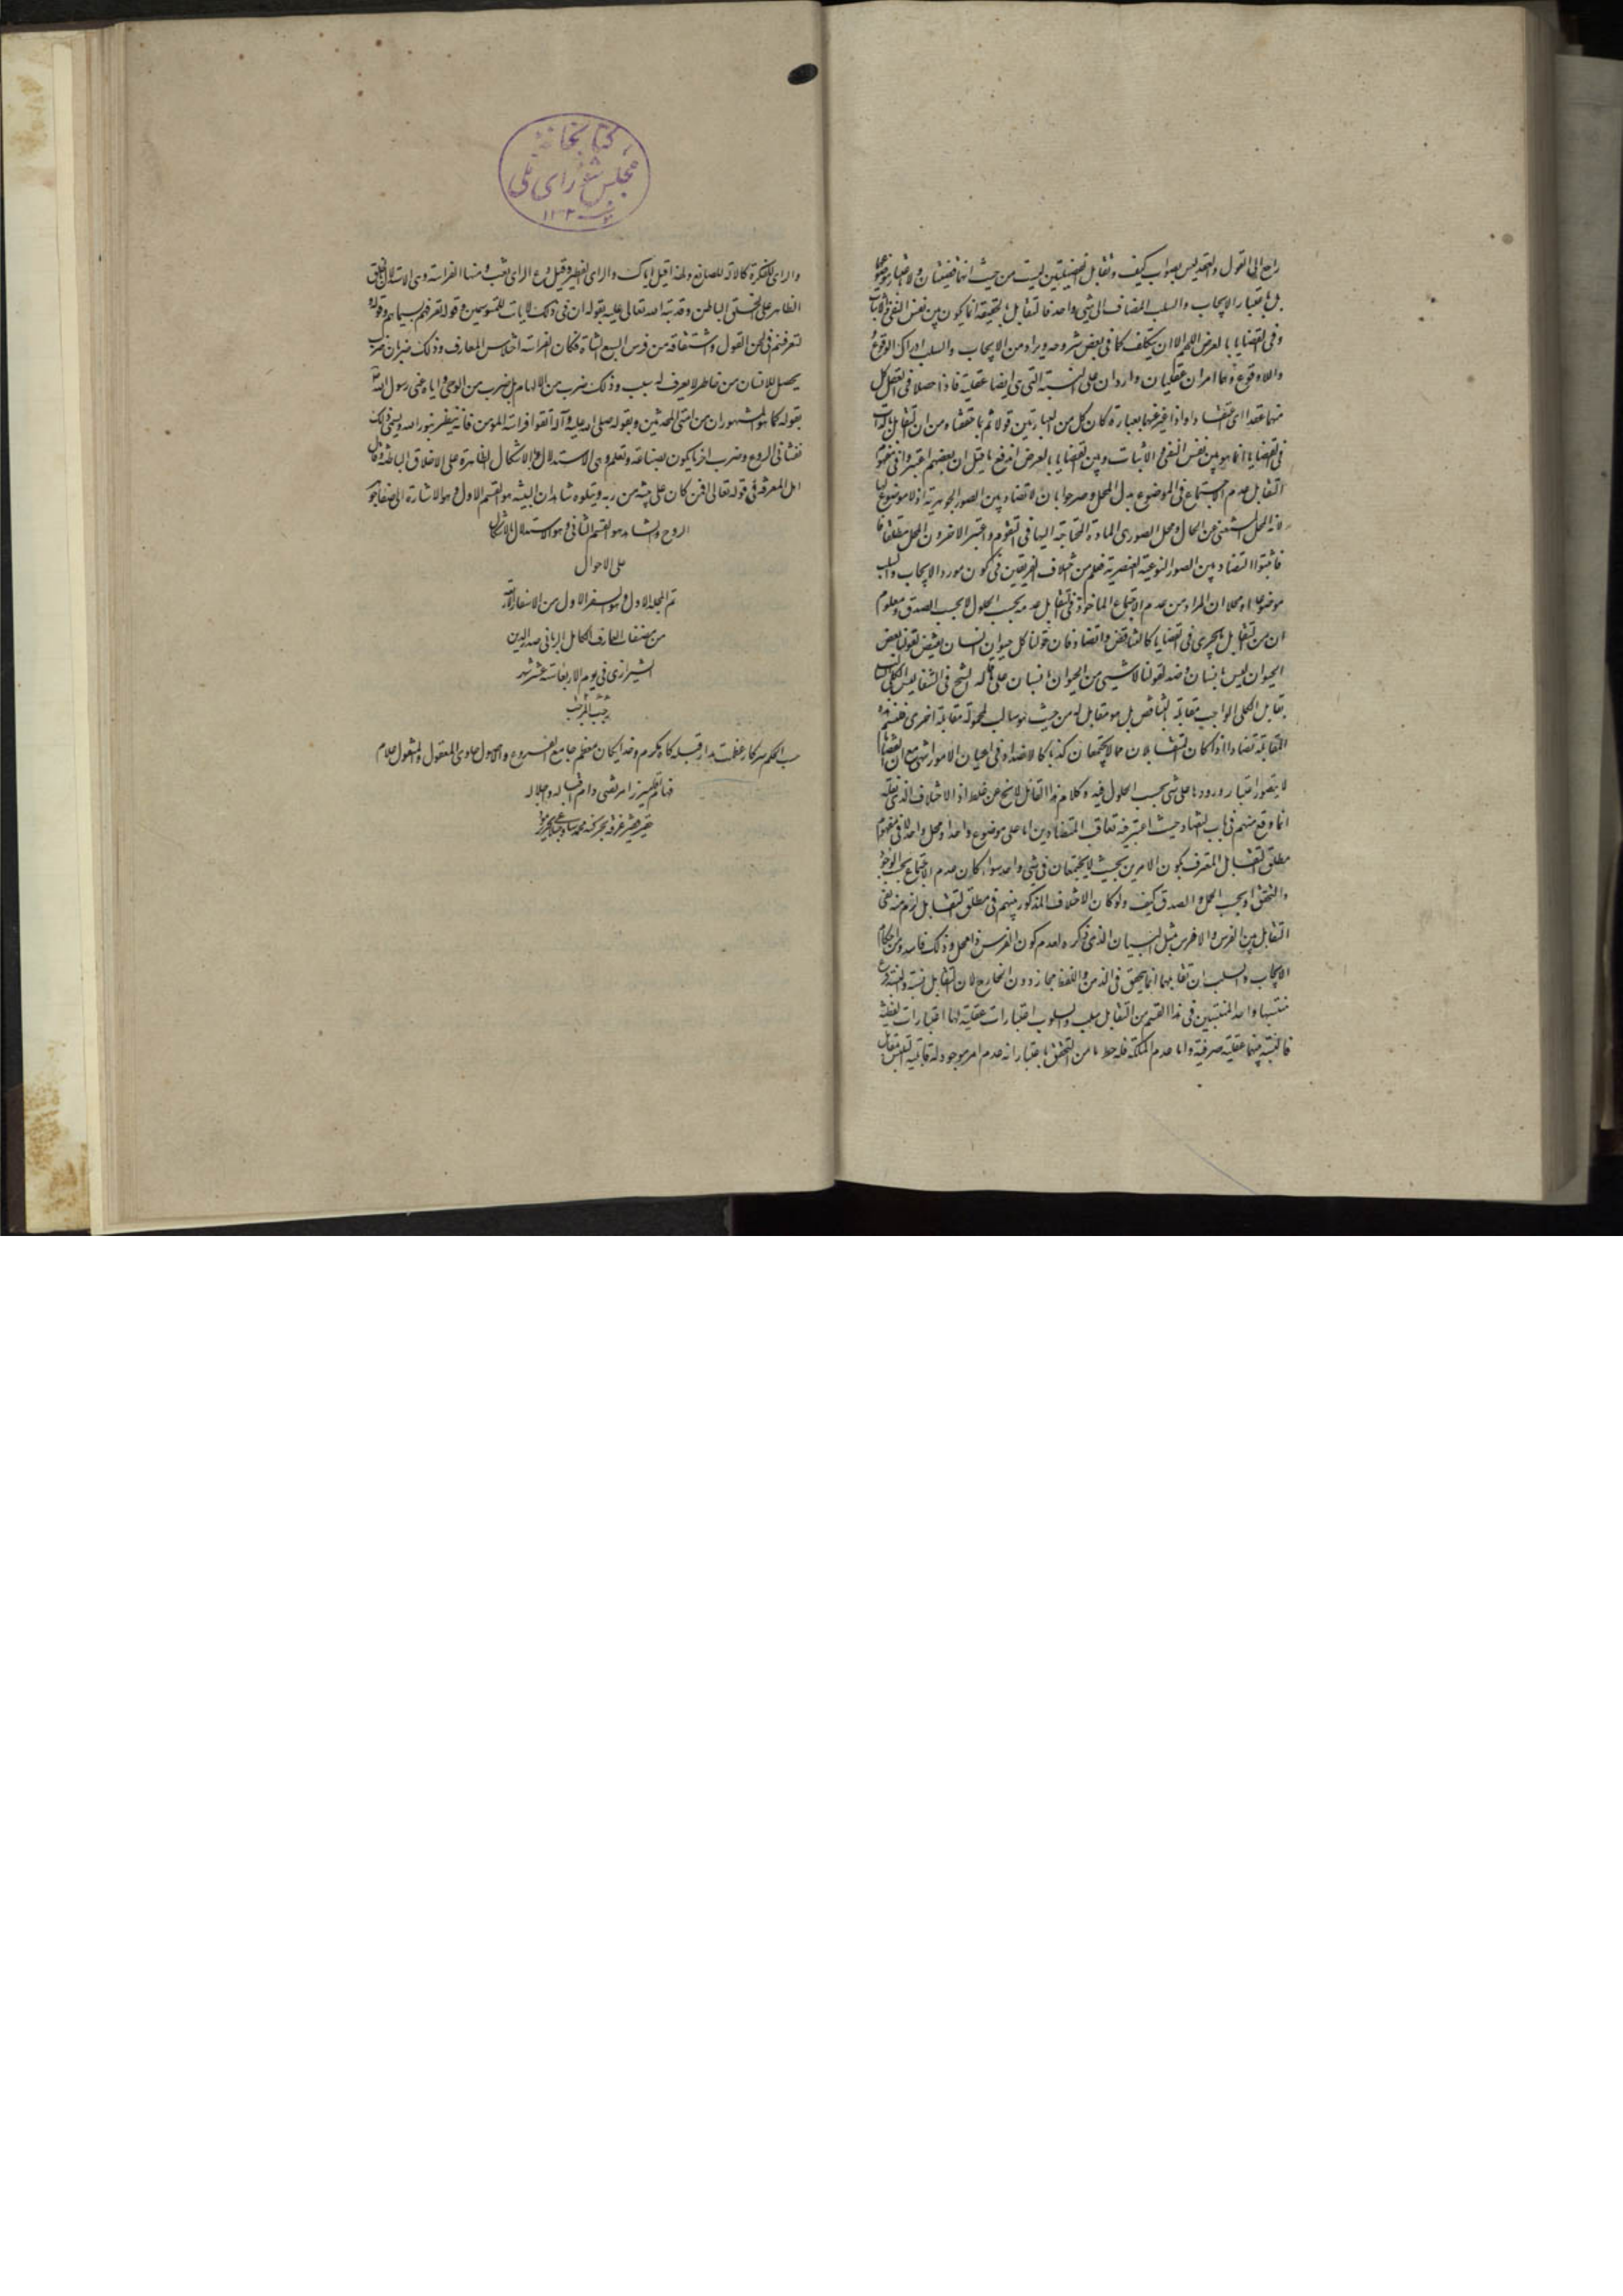 راجع الی القول والعقد لیس بصواب کیف وتقابل القضیتین لیست من حیث انهما قضیتان ولا باعتبار موضوعهما
بل باعتبار الایجاب والسلب المضاف الی شیء واحد فالتقابل بالحقیقة انما یکون بین نفس النفی والاثبات
وفی القضایا بالعرض اللهم الا ان یتکلف کما فی بعض شروحه ویراد من الایجاب والسلب ادراک الوقوع
واللاوقوع وهما امران عقلیان واردان علی النسبة التی هی ایضا عقلیة فاذا حصلا فی العقل کان کل
منهما عقدا ای اعتقادا واذا عبر عنهما بعبارة کان کل من العبارتین قولا ثم بما حققناه من ان التقابل بالذات
فی القضایا انما هو بین نفس النفی والاثبات وبین القضایا بالعرض اندفع ما قیل ان بعضهم اعتبروا فی مفهوم
التقابل عدم الاجتماع فی الموضوع بدل المحل وصرحوا بان لا تضاد بین الصور الجوهریة اذ لا موضوع لها
لانه المحل المستغنی عن الحال ومحل الصور هی المادة المحتاجة الیها فی التقوم واعتبر الاخرون المحل مطلقا
فاثبتوا التضاد بین الصور النوعیة العنصریة فعلم من خلاف الفریقین فی کون مورد الایجاب والسلب
موضوعا او محلا ان المراد من عدم الاجتماع الماخوذ فی التقابل عدمه بحسب الحلول لا بحسب الصدق ومعلوم
ان من التقابل ما یجری فی القضایا کالتناقض والتضاد فان قولنا کل حیوان انسان نقیض لقولنا بعض
الحیوان لیس بانسان وضد لقولنا لا شیء من الحیوان بانسان علی ما قاله الشیخ فی الشفا لیس الکلی السالب
یقابل الکلی الواجب مقابلة التناقض بل هو مقابل له من حیث هو سالب لمحموله مقابلة اخری فلنسم هذه
المقابلة تضادا اذا کان المتقابلان مما لا یجتمعان کذبا کالاضداد فی اعیان الامور انتهی مع ان القضایا
لا یتصور اعتبار ورودها علی شیء بحسب الحلول فیه وکلام هذا القائل لا یخ عن خلط اذ الاختلاف الذی نقله
انما وقع منهم فی باب التضاد حیث اعتبر فیه تعاقب المتضادین اما علی موضوع واحد او محل واحد لا فی مفهوم
مطلق التقابل المعرف بکون الامرین بحیث لا یجتمعان فی شیء واحد سواء کان عدم الاجتماع بحسب الوجود
والتحقق او بحسب الحمل والصدق کیف ولو کان الاختلاف المذکور منهم فی مطلق التقابل لزم منه نفی
التقابل بین الفرس واللافرس مثل البیان الذی ذکره لعدم کون الفرس ذا محل وذلک فاسد ومن احکام
الایجاب والسلب ان تقابلهما انما یتحقق فی الذهن واللفظ مجازا دون الخارج لان التقابل نسبة والنسبة فرع
منتسبیها واحد المنتسبین فی هذا القسم من التقابل سلب والسلوب اعتبارات عقلیة لها اعتبارات لفظیة
فالنسبة بینهما عقلیة صرفة واما عدم الملکة فله حظ ما من التحقق باعتبار انه عدم امر موجود له قابلیة التلبس بمقابل
کتابخانهٔ
مجلس شورای ملی
۱۳۰۲
والرای للفکرة کالالة للصانع ولهذا قیل ایاک والرای الفطیر وقیل دع الرای یغب ومنها الفراسة وهی الاستدلال بالخلق
الظاهر علی الخلق الباطن وقد نبه الله تعالی علیه بقوله ان فی ذلک لایات للمتوسمین وقوله تعرفهم بسیماهم وقوله
لتعرفنهم فی لحن القول واشتقاقه من فرس السبع الشاة فکان الفراسة اختلاس المعارف وذلک ضربان ضرب
یحصل للانسان من خاطر لا یعرف له سبب وذلک ضرب من الالهام بل ضرب من الوحی وایاه عنی رسول الله
بقوله کما هو المشهور ان من امتی المحدثین وبقوله صلی الله علیه وآله اتقوا فراسة المومن فانه ینظر بنور الله ویسمی ذلک
نفثا فی الروع وضرب اخر ما یکون بصناعة وتعلم وهی الاستدلال بالاشکال الظاهرة علی الاخلاق الباطنة وقال
اهل المعرفة فی قوله تعالی افمن کان علی بینة من ربه ویتلوه شاهد ان البینة هو القسم الاول وهو الاشارة الی صفاء جوهر
الروح والشاهد هو القسم الثانی وهو الاستدلال بالاشکال
علی الاحوال
تم المجلد الاول وهو السفر الاول من الاسفار الاربعة
من مصنفات العارف الکامل الربانی صدرالدین
الشیرازی فی یوم الاربعا ستة عشر شهر
رجب المرجب
حسب الحکم سرکار عظمت مدار قبله گاه مکرم وخدایگان معظم جامع الفروع والاصول حاوی المعقول والمنقول علام
فهام میرزا مرتضی دام اقباله واجلاله